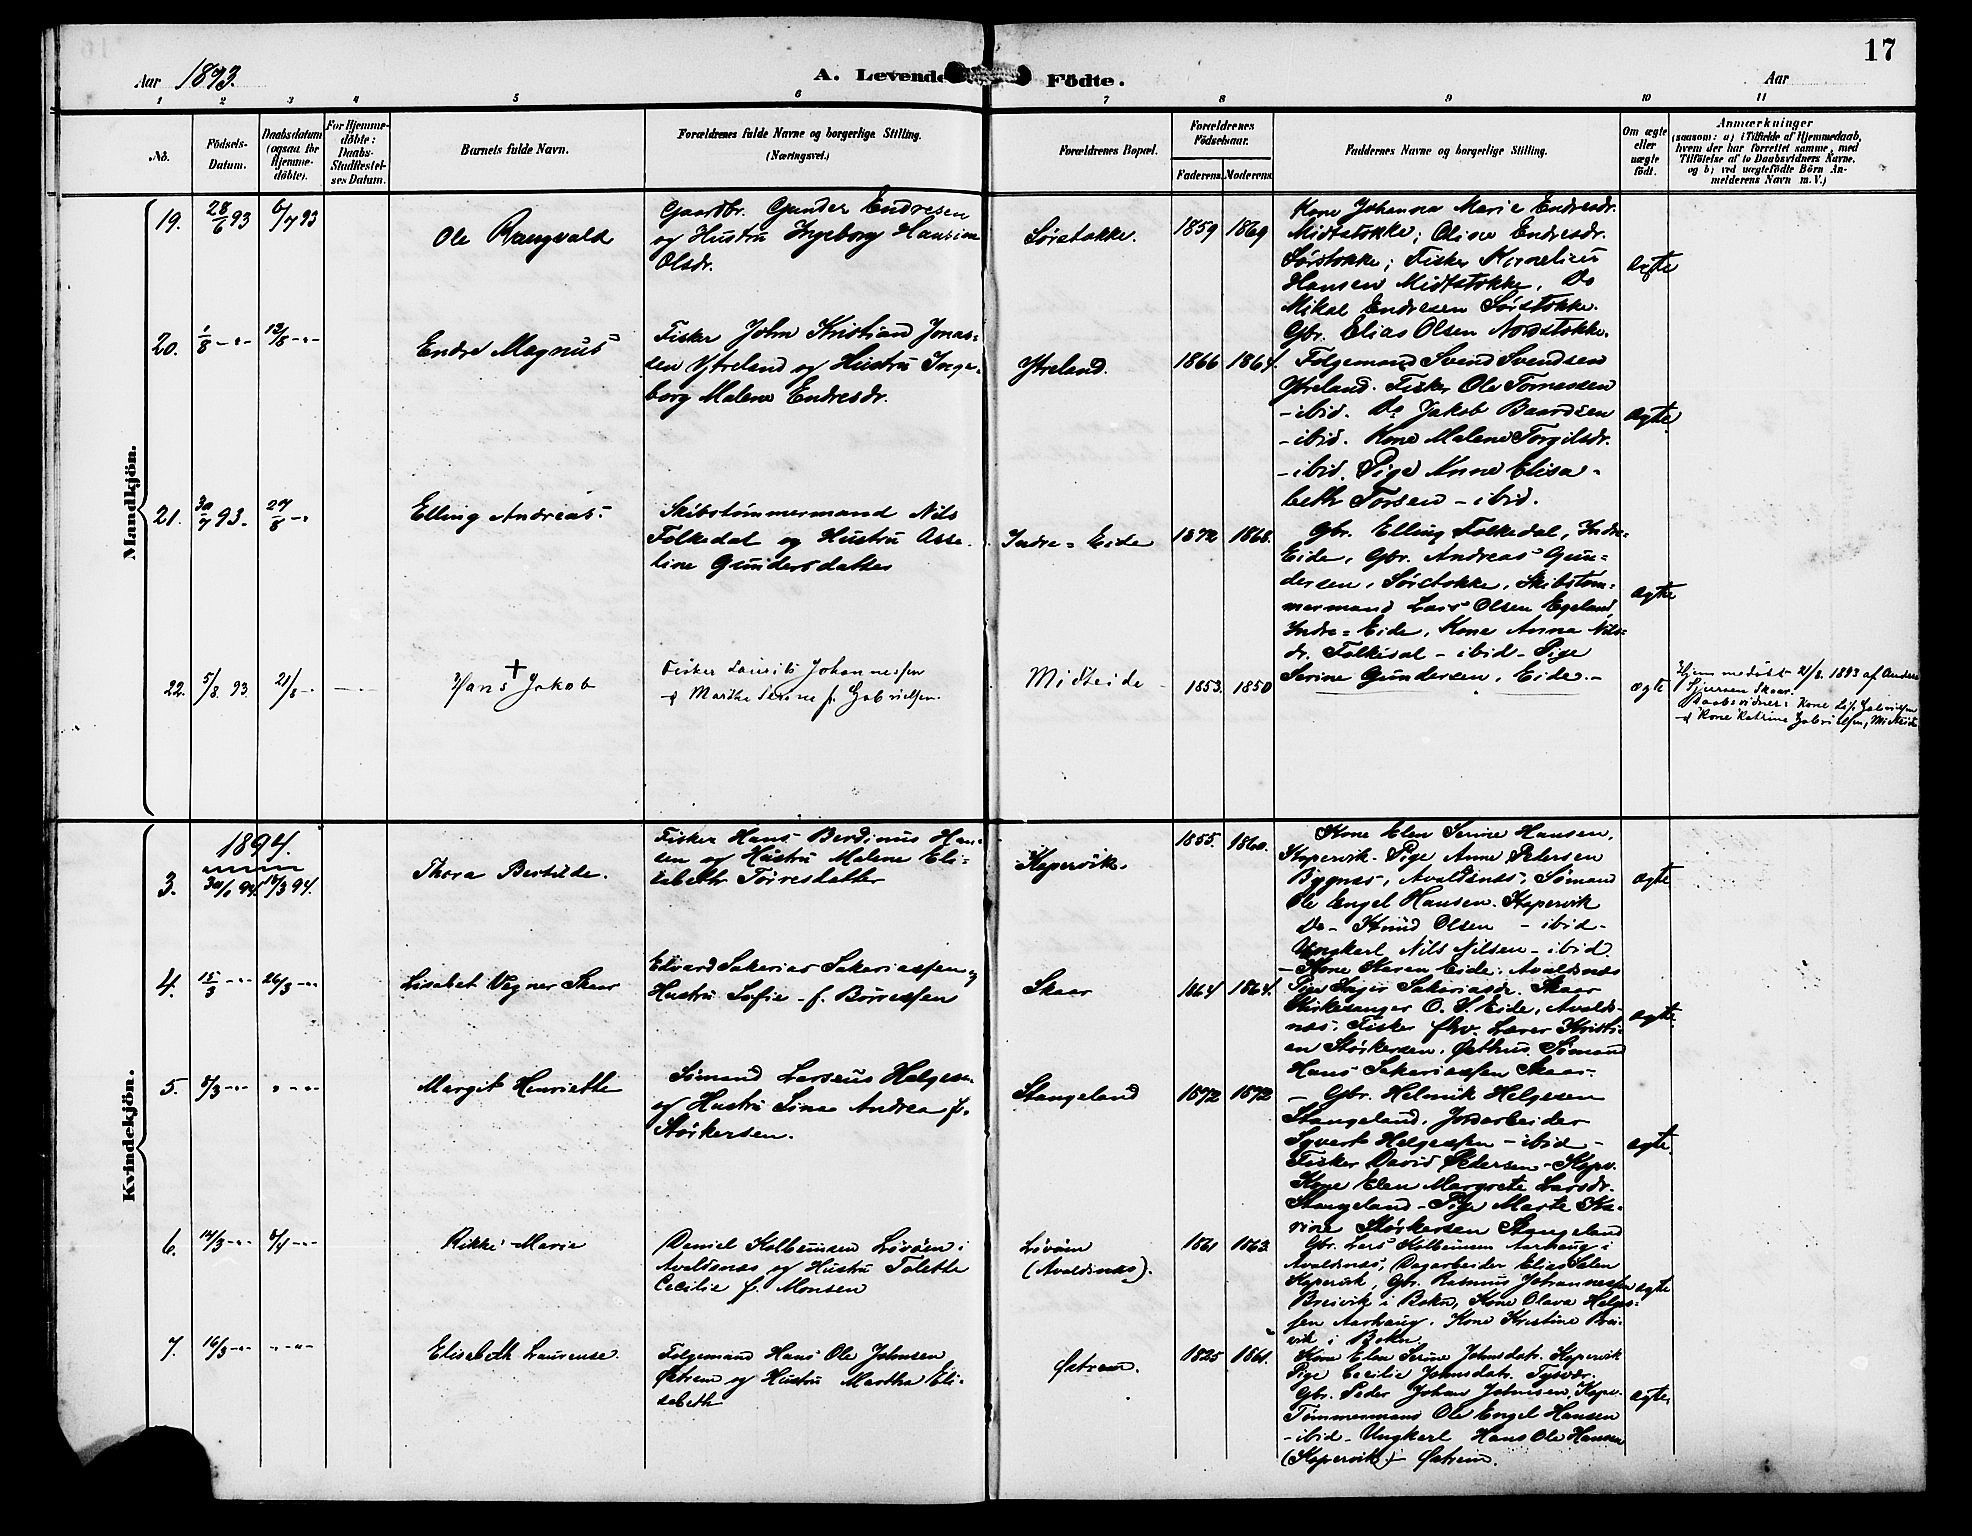 17
Aar 1893.
A. Levende Födte.
Aar
1 2 3 4 5 6 7 8 9 10 11
No.
Födsels-
Datum.
Daabsdatum
(ogsaa for
Hjemme-
döbte).
For Hjemme-
döbte:
Daabs-
Stadfæstel-
ses Datum.
Barnets fulde Navn.
Forældrenes fulde Navne og borgerlige Stilling.
(Næringsvei.)
Forældrenes Bopæl.
Forældrenes
Födselsaar.
Faderens. Moderens.
Faddernes Navne og borgerlige Stilling.
Om ægte
eller
uægte
födt.
Anmærkninger
(saasom: a) i Tilfælde af Hjemmedaab,
hvem der har forrettet samme, med
Tilföielse af to Daabsvidners Navne,
og b) ved uægtefödte Börn An-
melderens Navn m. V.)
Mandkjön.
19. 28/6 93 6/7 93
Ole Rangvald
Gaardbr. Gunder Endresen
og Hustru Ingeborg Hansine
Olsdr.
Sørstokke.
1859 1869
Kone Johanna Marie Endresdr.
Midtstokke; Oline Endresdr.
Sørstokke; Fisker Kornelius
Hansen Midtstokke, Do
Mikal Endresen Sørstokke.
Gbr. Elias Olsen Nordstokke.
ægte
20. 1/8 -"- 13/8 -"-
Endre Magnus
Fisker John Kristian Jonas-
sen Ytreland og Hustru Inge-
borg Malene Endresdr.
Ytreland.
1866 1864.
Folgemand Svend Svendsen
Ytreland. Fisker Ole Tornessen
- ibid. Do Jakob Baardsen
- ibid. Kone Malene Torgilsdr.
- ibid. Pige Anne Elisa-
beth Torsen - ibid.
ægte
21. 30/7 93. 27/8 -"
Elling Andreas.
Skibstømmermand Nils
Folkedal og Hustru Asse-
line Gundersdatter
Indre=Eide
1872 1868.
Gbr. Elling Folkedal, Indre-
Eide, Gbr. Andreas Gun-
dersen, Sørstokke, Skibstøm-
mermand Lars Olsen Egeland,
Indre=Eide, Kone Anna Nils-
dr. Folkedal - ibid. Pige
Serine Gundersen, Eide.-
ægte
22. 5/8 93. 21/8 -"-
+
Hans Jakob
Fisker Laurits Johannessen
& Martha Serine f. Gabrielsen.
Midteide
1853. 1850
ægte
Hjemmedøbt 21/8. 1893 af Anders
Sjursen Skaar.
Daabsvidner: Kone Gabrielsen
& Kone Katrine Gabrielsen, Midteide
Kvindekjön.
1894.
3. 30/1 94. 18/3 94.
Thora Bertilde.
Fisker Hans Berdinus Han-
sen og Hustru Malene Eli-
sabeth Torresdatter
Kopervik.
1855. 1860.
Kone Elen Serine Hansen,
Kopervik. Pige Anne Petersen
Bygnes, Avaldsnes, Sømand
Ole Engel Hansen. Kopervik
Do - Knud Olsen - ibid -
Ungkarl Nils Nilsen - ibid
ægte
4. 15/3 -"- 26/3 -"-
Lisabet Vegner Skaar
Edvard Sakarias Sakariassen og
Hustru Sofie - f. Børresen
Skaar
1864 1864.
- Kone Karen Eide, Avaldsnes
Pige Inger Sakariasdr. Skaar
Kirkesanger O. S. Eide, Avalds-
nes. Fisker fhv. Lærer Kristi-
an Størkersen. Østhus. Sømand
Hans Sakariassen Skaar-
ægte.
5. 8/3 -"- " -"-
Margit Henriette
Sømand Larseus Helgesen
og Hustru Lina Andrea f.
Størkersen.
Stangeland
1872 1872
- Gbr. Helmik Helgesen
Stangeland. Jordarbeider
Syvert Helgesen - ibid -
Fisker David Pedersen - Kopv.
Kone Elen Margrete Larsdr.
Stangeland - Pige Marte Ka-
rine Størkersen Stangeland
ægte.
6. 14/3 -"- 8/4 -"-
Rikke Marie
Daniel Kolbeinsen Løvøen i
Avaldsnes og Hustru Tolette
Cecilie f. Monsen
Løvøen
(Avaldsnes).
1861 1863.
Gbr. Lars Kolbeinsen Aarhaug i
Avaldsnes, Dagarbeider Elias Selen
Kopervik, Gbr. Rasmus Johannessen
Breivik i Bokn, Kone Olava Helges-
sen Aarhaug. Kone Kristine Brei-
vik i Bokn
ægte
7. 16/3 -"- " -"-
Elisabeth Laurense.
Folgemand Hans Ole Johnsen
Østrem og Hustru Martha Eli-
sabeth
Østrem.
1825 1861.
Kone Elen Serine Johnsdatr. Kopervik
Pige Cecilie Johnsdatr. Tysvær.
Gbr. Peder Johan Johnsen, Kopv.
Tømmermand Ole Engel Hansen
- ibid - Ungkarl Hans Ole Hansen
(Kopervik) - Østrem.
ægte.